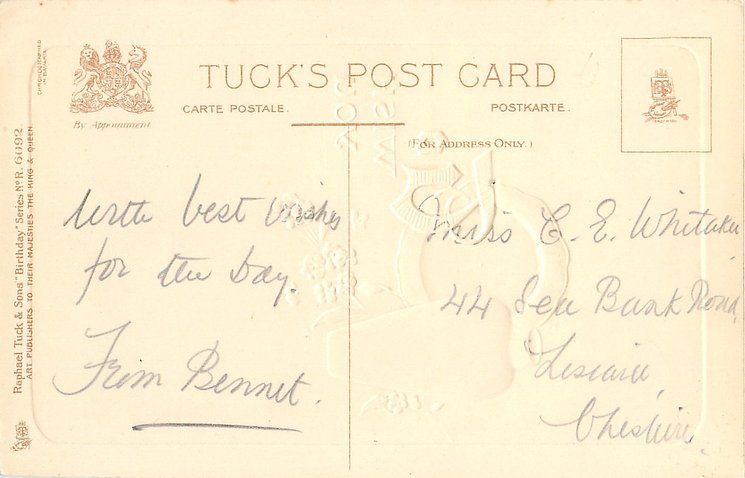 TUCK'S POST CARD
CARTE POSTALE.
POSTKARTE.
By Appointment
(FOR ADDRESS ONLY.)
CHROMOGRAPHED
IN BAVARIA
Raphael Tuck & Sons' "Birthday" Series Nº R. 6092.
ART PUBLISHERS TO THEIR MAJESTIES THE KING & QUEEN.
With best Wishes
for the Day.
From Bennet.
Miss C. E. Whitaker
44 Sea Bank Road,
Liscard,
Cheshire.